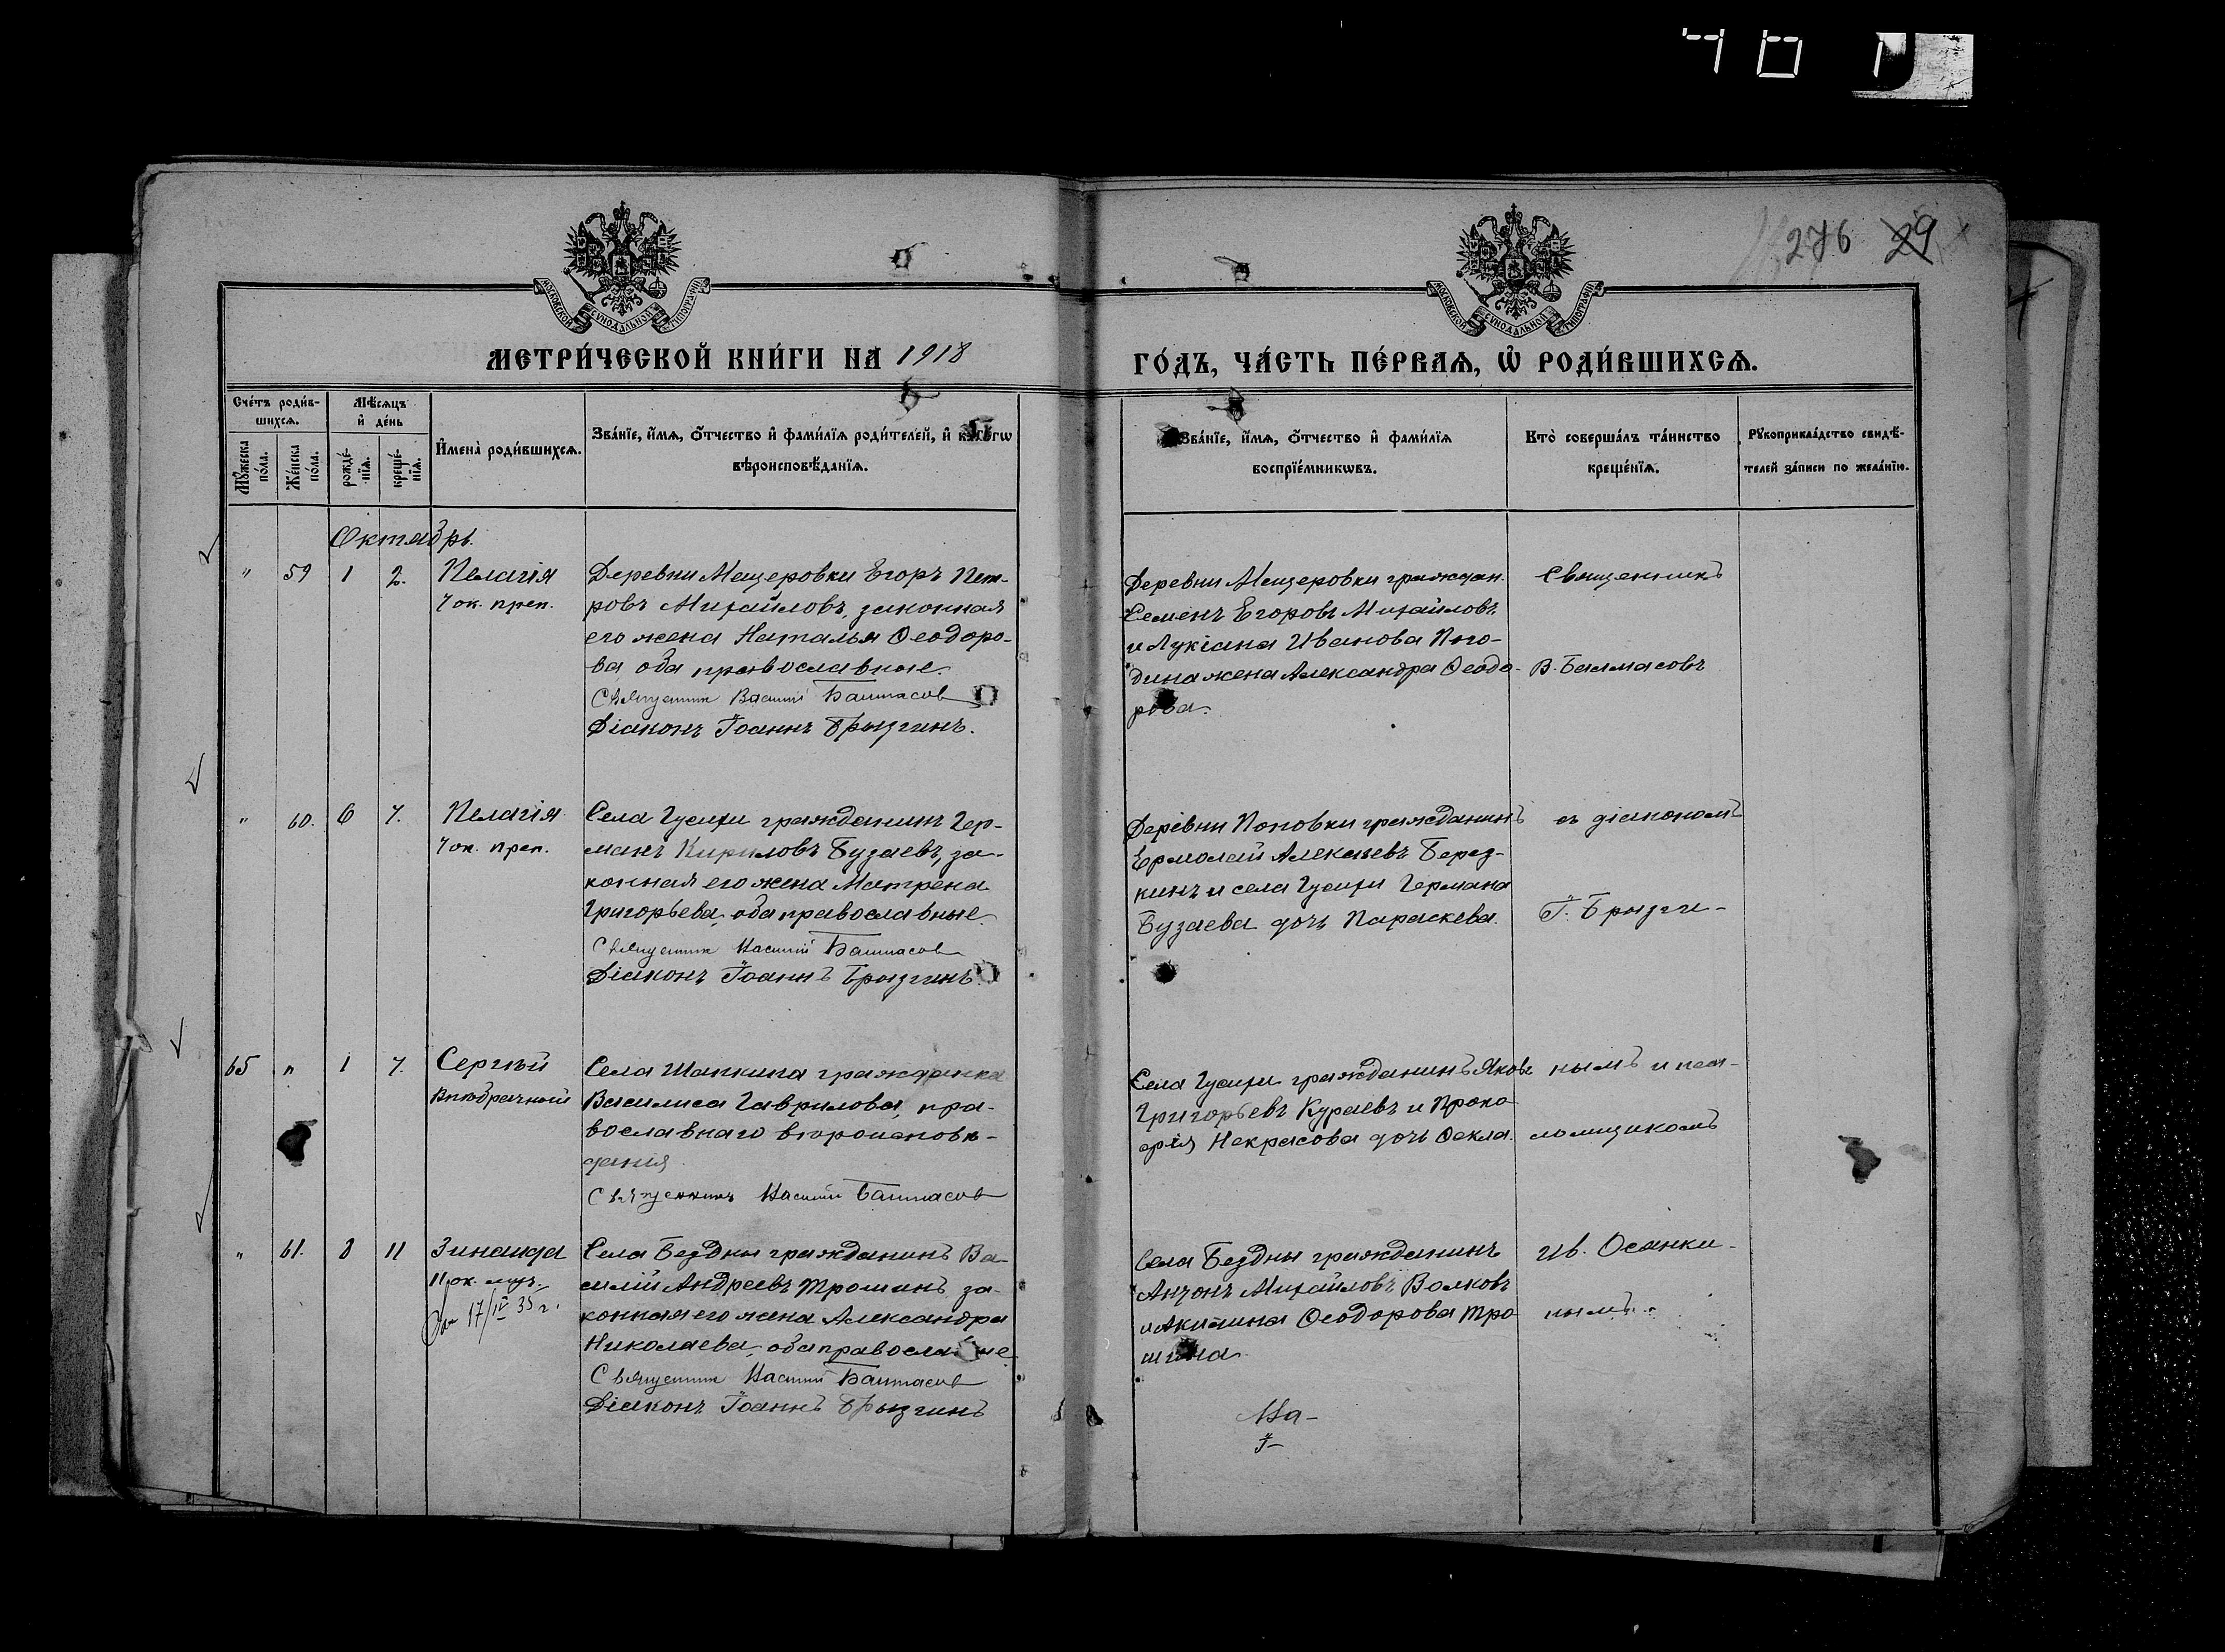 276 29
МОСКОВСКОЙ СУНОДАЛЬНОЙ ТИПОГРАФІИ
МОСКОВСКОЙ СУНОДАЛЬНОЙ ТИПОГРАФІИ
МЕТРИ́ЧЕСКОЙ КНИ́ГИ НА 1918
ГО́ДЪ, ЧА́СТЬ ПЕ́РВАѦ, Ѿ РОДИ́ВШИХСѦ.
Сче́тъ роди́в-
шихсѧ.
Мꙋ́жеска по́ла.
Же́нска по́ла.
Мѣ́сѧцъ
и҆ де́нь
рожде́-
нїѧ.
креще́-
нїѧ.
И҆мена̀ роди́вшихсѧ.
Зва́нїе, и҆́мѧ, ѻ҆́тчество и҆ фами́лїѧ роди́телей, и҆ како́гѡ
вѣроисповѣ́данїѧ.
Зва́нїе, и҆́мѧ, ѻ҆́тчество и҆ фами́лїѧ
воспрїе́мникѡвъ.
Кто̀ соверша́лъ та́инство
креще́нїѧ.
Рꙋкоприкла́дство свидѣ́-
телей за́писи по жела́нїю.
Октябрь.
" 59 1 2. Пелагія
4 ок. преп.
Деревни Мещеровки Егоръ Пет-
ровъ Михайловъ, законная
его жена Наталья Ѳеодоро-
ва, оба православные.
Священник Василий Балмасов
Діаконъ Іоаннъ Брызгинъ.
Деревни Мещеровки граждан.
Семенъ Егоровъ Михайловъ
и Лукіана Иванова Пого-
дина жена Александра Ѳеодо-
рова.
Священникъ
В. Балмасовъ
" 60. 6 7. Пелагія
4 ок. преп.
Села Гусихи гражданинъ Гер-
манъ Кириловъ Бузаевъ, за-
конная его жена Матрена
Григорьева, оба православные
Священник Василий Балмасов
Діаконъ Іоаннъ Брызгинъ.
Деревни Поповки гражданинъ
Ермолай Алексѣевъ Берез-
кинъ и села Гусихи Германа
Бузаева дочь Параскева.
съ діакономъ
І. Брызги-
65 " 1 7. Сергѣй
Внѣбрачный
Села Шапкина гражданка
Василиса Гаврилова, пра-
вославнаго вѣроисповѣ-
данія
Священникъ Василий Балмасов
Села Гусихи гражданинъ Яковъ
Григорьевъ Кураевъ и Проко-
фія Некрасова дочь Ѳекла.
нымъ и пса-
ломщикомъ
" 61. 8 11 Зинаида
11 ок. муч.
17/IV 35 г.
Села Бездны гражданинъ Ва-
силій Андреевъ Трошинъ, за-
конная его жена Александра
Николаева, оба православные
Священник Василий Балмасов
Діаконъ Іоаннъ Брызгинъ
Села Бездны гражданинъ
Антонъ Михайловъ Волковъ
и Акилина Ѳеодорова Тро-
шина.
Ив. Осанки-
нымъ.